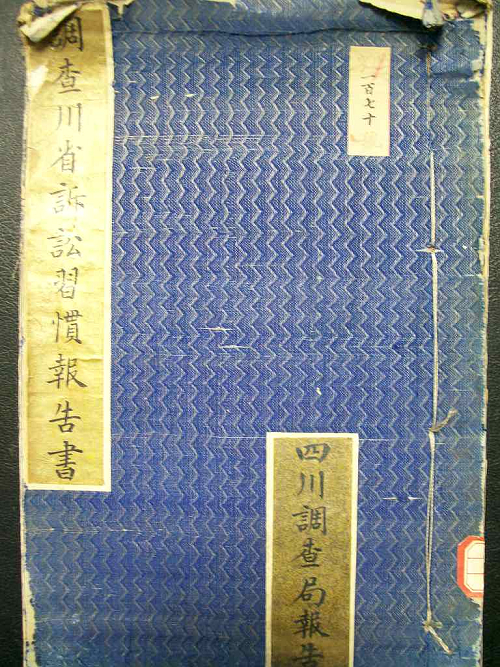 調查川省訴訟習慣報告書
一百七十
四川調查局報告